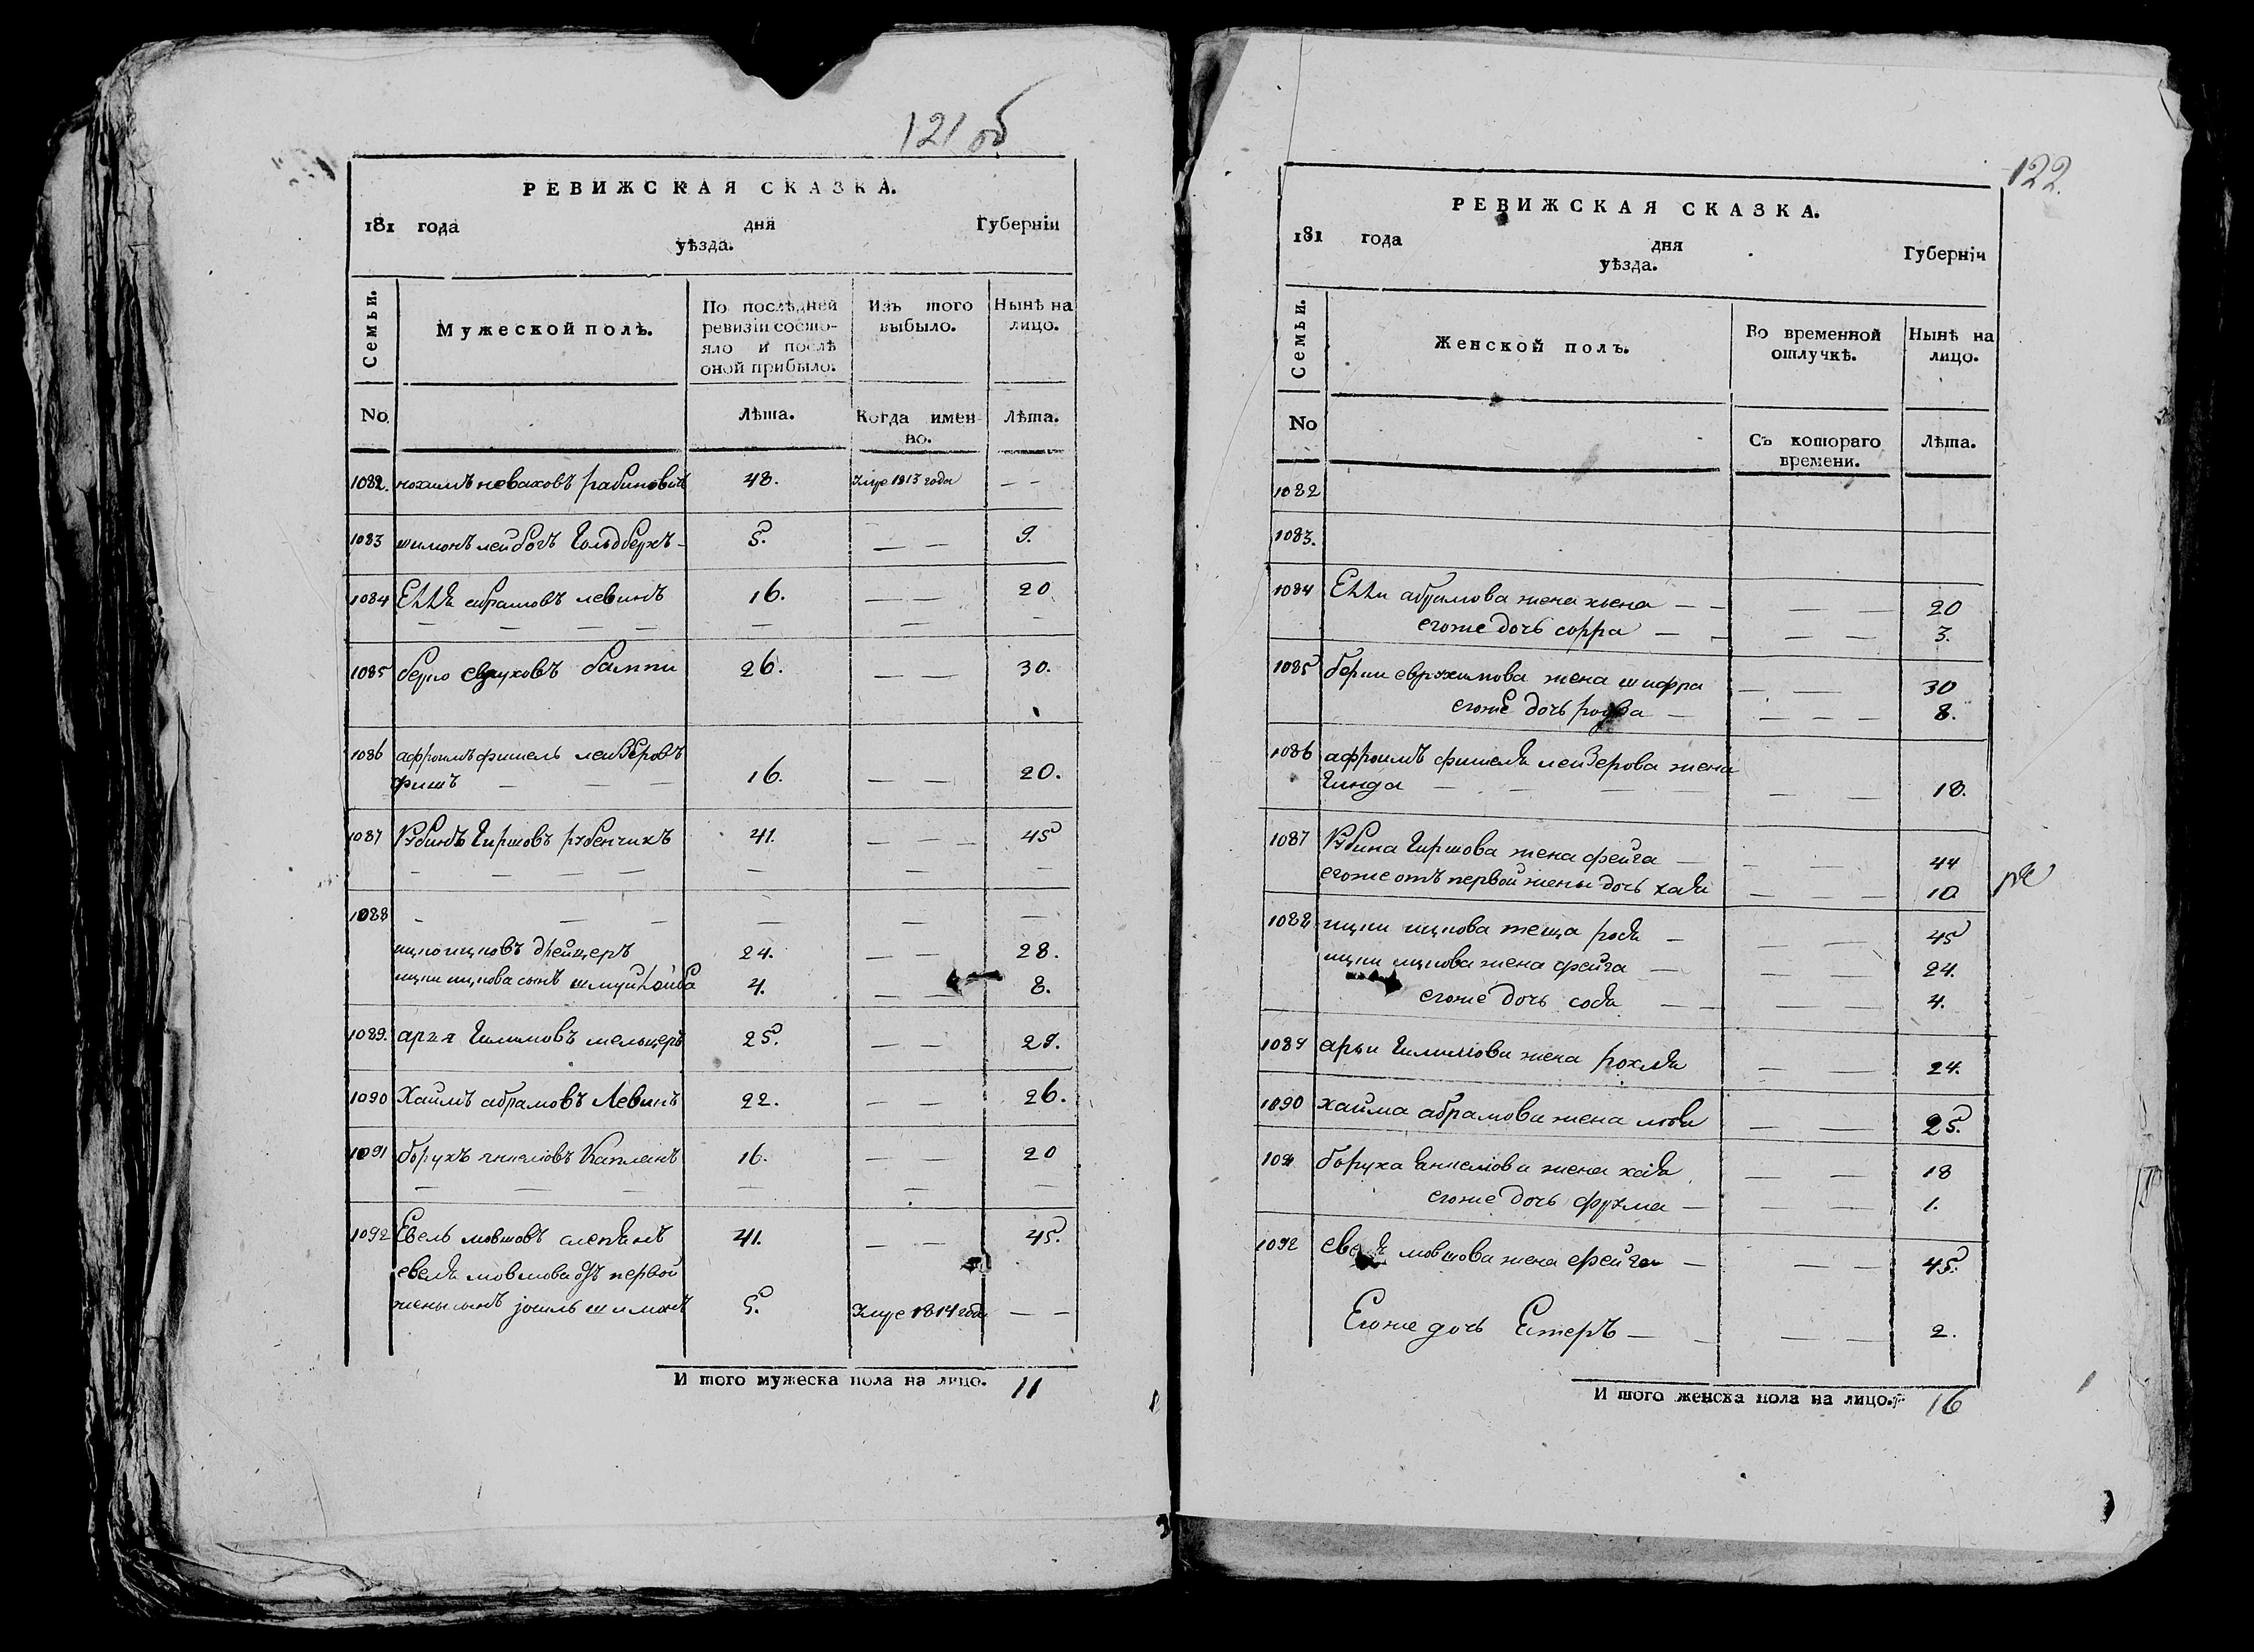 121 об
РЕВИЖСКАЯ СКАЗКА.
181 года дня Губернiи
уѣзда.
Семьи.
Мужеской полъ.
По послѣдней
ревизiи состо-
яло и послѣ
оной прибыло.
Изъ того
выбыло.
Нынѣ на
лицо.
No
Лѣта.
Когда имен-
но.
Лѣта.
1082. нохимъ неваховъ рабиновичъ 48. 1813 года — —
1083 шимонъ лейбовъ Гольдберхъ — 5. — — 9.
1084 абрамовъ левинъ 16. — — 20
1085 берко 26. — — 30.
1086 афроимъ фишель лейзеровъ
фишъ — — — 16. — — 20.
1087 Рубинъ Гиршовъ рубенчикъ 41. — — 45
1088 — — — — — —
ицко ицковъ дрейцеръ 24. — — 28.
ицки ицкова сынъ 4. — — 8.
1089. арья мельцеръ 25. — — 29.
1090 Хаимъ абрамовъ Левинъ 22. — — 26.
1091 борухъ Капланъ 16. — — 20
1092 Евель мовшовъ 41. — — 45.
евеля мовшова отъ первой
жены сынъ шимонъ 5. 1814 года — —
И того мужеска пола на лицо. 11
122.
РЕВИЖСКАЯ СКАЗКА.
181 года дня Губернiи
уѣзда.
Семьи.
Женской полъ.
Во временной
отлучкѣ.
Нынѣ на
лицо.
No
Съ котораго
времени.
Лѣта.
1082
1083.
1084 абрамова жена хьена — — — — 20
егоже дочь сорра — — — — 3.
1085 жена шифра — — 30
егоже дочь — — — — 8.
1086 афроимъ фишеля лейзерова жена
Гинда — — — — — — 18.
1087 Рубина Гиршова жена фейга — — — 44
егоже отъ первой жены дочь хая — — 10
1088 ицки ицкова теща рося — — — 45
ицки ицкова жена фейга — — — 24.
егоже дочь сося — — — — 4.
1089 арьи жена рохля — — 24.
1090 хаима абрамова жена — — 25.
1091 боруха жена хая — — 18
егоже дочь фрума — — — 1.
1092 мовшова жена фейга — — — 45.
Егоже дочь Естеръ — — — — 2.
И того женска пола на лицо. 16